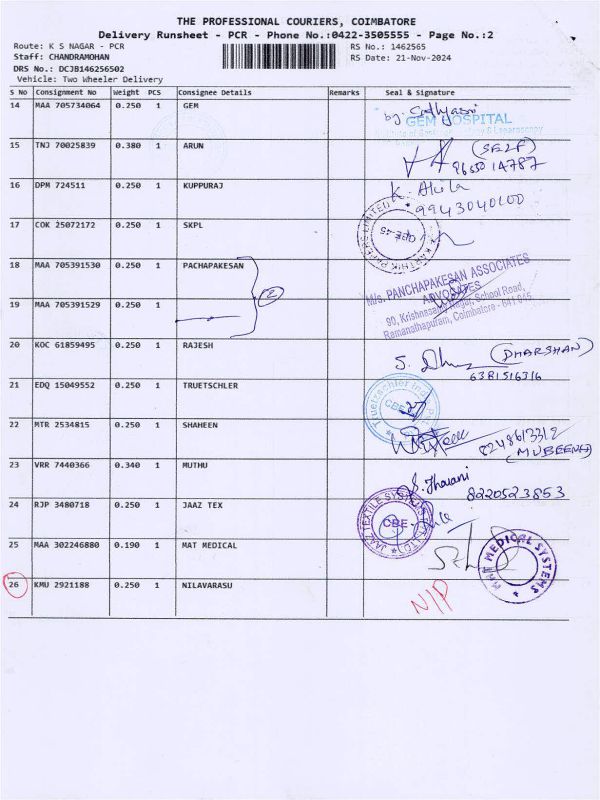 THE PROFESSIONAL COURIERS, COIMBATORE
Delivery Runsheet - PCR - Phone No.:0422-3505555 - Page No.:2
Route: K S NAGAR - PCR
RS No.: 1462565
Staff: CHANDRAMOHAN
RS Date: 21-Nov-2024
DRS No.: DCJB146256502
Vehicle: Two Wheeler Delivery
S No Consignment No Weight PCS Consignee Details Remarks Seal & Signature
14 MAA 705734064 0.250 1 GEM
GEM HOSPITAL
15 TNJ 70025839 0.380 1 ARUN (SELF)
16 DPM 724511 0.250 1 KUPPURAJ K. Akila
9943040100
17 COK 25072172 0.250 1 SKPL
18 MAA 705391530 0.250 1 PACHAPAKESAN
2
M/s. PANCHAPAKESAN ASSOCIATES
ADVOCATES
90, Krishnasamy Nagar, School Road,
Ramanathapuram, Coimbatore - 641 045.
19 MAA 705391529 0.250 1
20 KOC 61859495 0.250 1 RAJESH (DHARSHAN)
6381516316
21 EDQ 15049552 0.250 1 TRUETSCHLER
CBE
22 MTR 2534815 0.250 1 SHAHEEN 8248613312
(MUBEENA)
23 VRR 7440366 0.340 1 MUTHU
8220523853
24 RJP 3480718 0.250 1 JAAZ TEX
JAAZ TEXTILE SYSTEMS
CBE
25 MAA 302246880 0.190 1 MAT MEDICAL
MAT MEDICAL SYSTEMS
26 KMU 2921188 0.250 1 NILAVARASU N/P